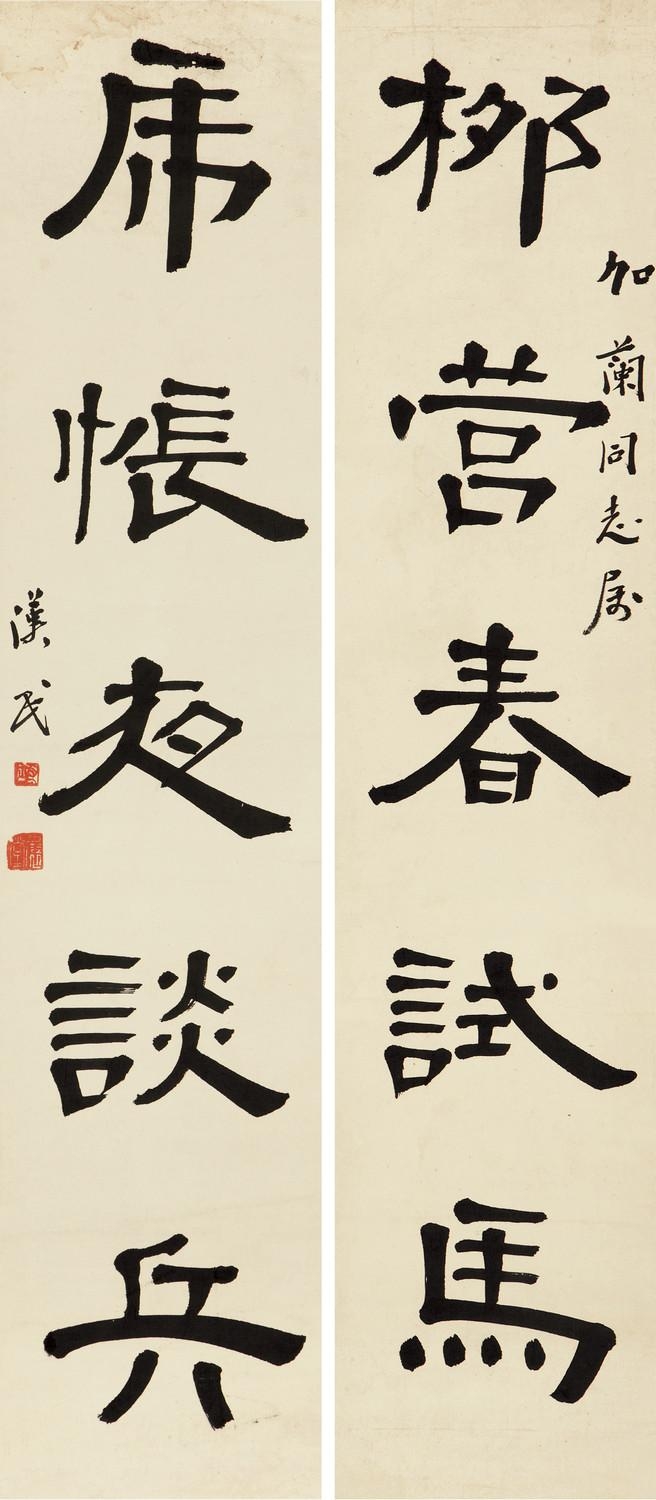 加蘭同志属
柳營春試馬
虎帳夜談兵
漢民